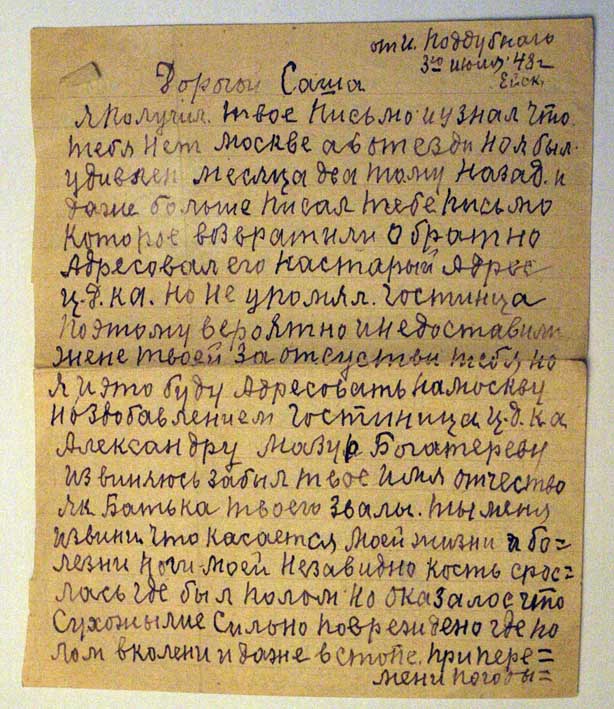 от И. Поддубного
3го июля 43 г
Ейск.
Дорогой Саша
Я получил. твое письмо и узнал что.
тебя нет Москве а вотезди но я был.
удивлен месяца два тому назад. и
даже больше писал тебе письмо
которое возвратили обратно
Адресовал его на старый Адрес
Ц.Д.К.А. но не упомял. гостинца
поэтому вероятно и недоставили
жене твоей за отсуствием тебя но
я и это буду Адресовать на Москву
но здобавлением гостиница Ц.Д.К.А
Александру Мазур Богатереву
извиняюсь забыл твое имя отчество
як Батька твоего звалы. ты меня
извини. что касается моей жизни и бо=
лезни ноги моей незавидно кость срос=
лась где был полом но оказалос что
Сухожылие сильно повреждено где по
лом в колени и даже в стопе. при пере=
мени погоды=